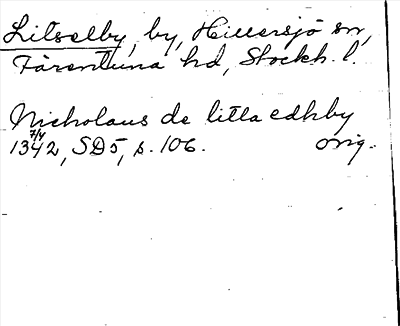 Litselby, by, Hillersjö sn,
Färentuna hd, Stockh. l.
Nicholaus de litla edhby
7/4
1342, SD5, s. 106. orig.